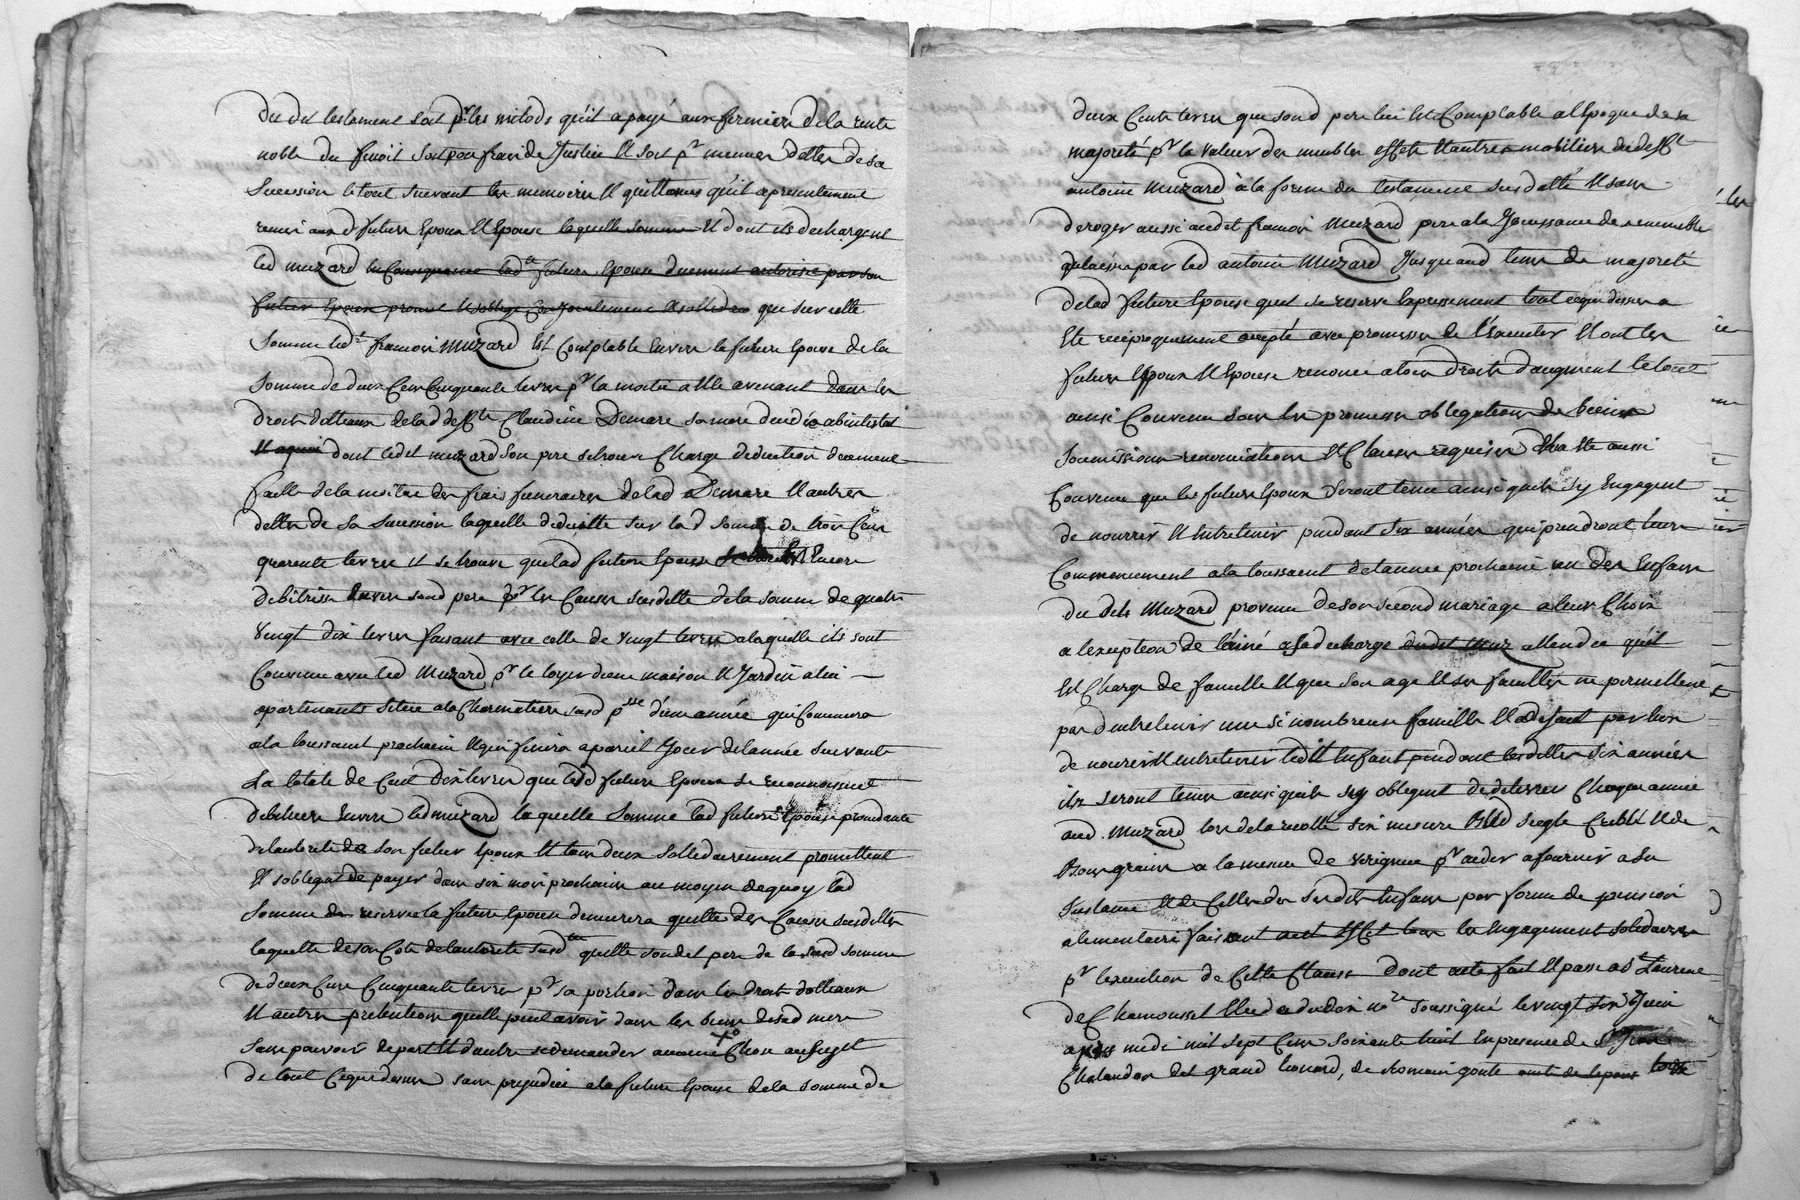 du dit testament soit pr les milods qu'il a payé aux fermiers de la rente
noble du finoit soit pour frais de Justice et soit pr menues dettes de sa
succession le tout suivant les memoires et quittances qu'il a presentement
remis aux d futurs Epoux et Epouse laquelle somme et dont ils dechargent
led muzard en Consequence lad te future Epouse duement autorisée par son
futur Epoux promet et s'oblige Conjointement et solidre que sur celle
somme led t francois Muzard est Comptable envers la future Epouse de la
somme de deux Cent Cinquante livres pr la moitié a elle avenant dans les
droits dotteaux de lad deffte Claudine Demare sa mere decedée abintestat
et aquoi dont ledit muzard son pere se trouve Chargé deduction duement
faitte de la moitié des frais funeraires de lad Demare et autres
dettes de sa succession laquelle deduitte sur la d somme de trois Cent
quarante livres il se trouve que lad future Epouse encore
debitrisse Envers sond pere pr les Causes susdittes de la somme de quatre
vingt dix livres faisant avec celle de vingt livres a laquelle ils sont
Convenu avec led Muzard pr le loyer d'une maison et Jardin a lui
apartenants situé a la Charmatiere susd psse d'une année qui Commencera
a la toussaint prochain et qui finira a pareil Jour de l'année suivante
La totale de Cent dix livres que lesd futurs Epoux se reconnoissent
debiteurs Envers led muzard laquelle somme lad future Epouse procedante
de l'autorité de son futur Epoux et tous deux sollidairement promettent
et s'obligent de payer dans six mois prochains au moyen de quoy lad
somme de reserve la future Epouse demeurera quitte des Causes susdittes
laquelle de son Coté de l'autorité susd te quitte sondit pere de la susd somme
de deux Cent Cinquante livres pr sa portion dans les droits dotteaux
et autres pretentions qu'elle peut avoir dans les biens de sad mere
sans pouvoir de part et d'autre se demander aucune Chose au sujet
de tout Ce que dessus sans prejudice a la future Epouse de la somme de
deux Cents livres que sond pere lui est Comptable a l'Epoque de sa
majorité pr la valeur des meubles effets et autres mobiliers dudefft
antoine Muzard a la forme du testament susdatté et sans
deroger aussi audit francois Muzard pere a la Jouissance des immeubles
delaissés par led antoine Muzard Jusqu'aud tems de majorité
de lad future Epouse qu'il se reserve Expressement tout ce que dessus a
Eté reciproquement accepté avec promesses de l'Executer et ont les
futurs Epoux et Epouse renoncé a tous droits d'augment le tout
ainsi Convenu sous les promesses obligations de biens
soumissions renonciations et Clauses requises a Eté aussi
Convenu que les futurs Epoux seront tenus ainsi qu'ils s'y Engagent
de nourrir et Entretenir pendant six années qui prendront leur
Commencement a la toussaint de l'année prochaine un des Enfans
du dit Muzard provenus de son second mariage a leur Choix
a l'exception de l'ainé a sa decharge dudit Muz attendu qu'il
est Chargé de famille et que son age et ses facultés ne permettent
pas d'entretenir une si nombreuse famille et a defaut par eux
de nourir et entretenir ledit Enfant pendant lesdittes six années
ils seront tenus ainsi qu'ils s'y obligent de delivrer Chaque année
aud. Muzard lors de la recolte six mesures bled seigle Criblé et de
bons grains a la mesure de pr aider a fournir a la
subsistance et de Celles des susdits Enfans par forme de pension
alimentaire faisant a cet effet tous les Engagements solidaires
pr l'execution de Cette Clause Dont acte fait et passé a st Laurent
de Chamousset Etude du no re soussigné le vingt six Juin
après midi mil sept Cent soixante huit En presence de sr Jean
Chalandon dit grand leonard, de Romain goute